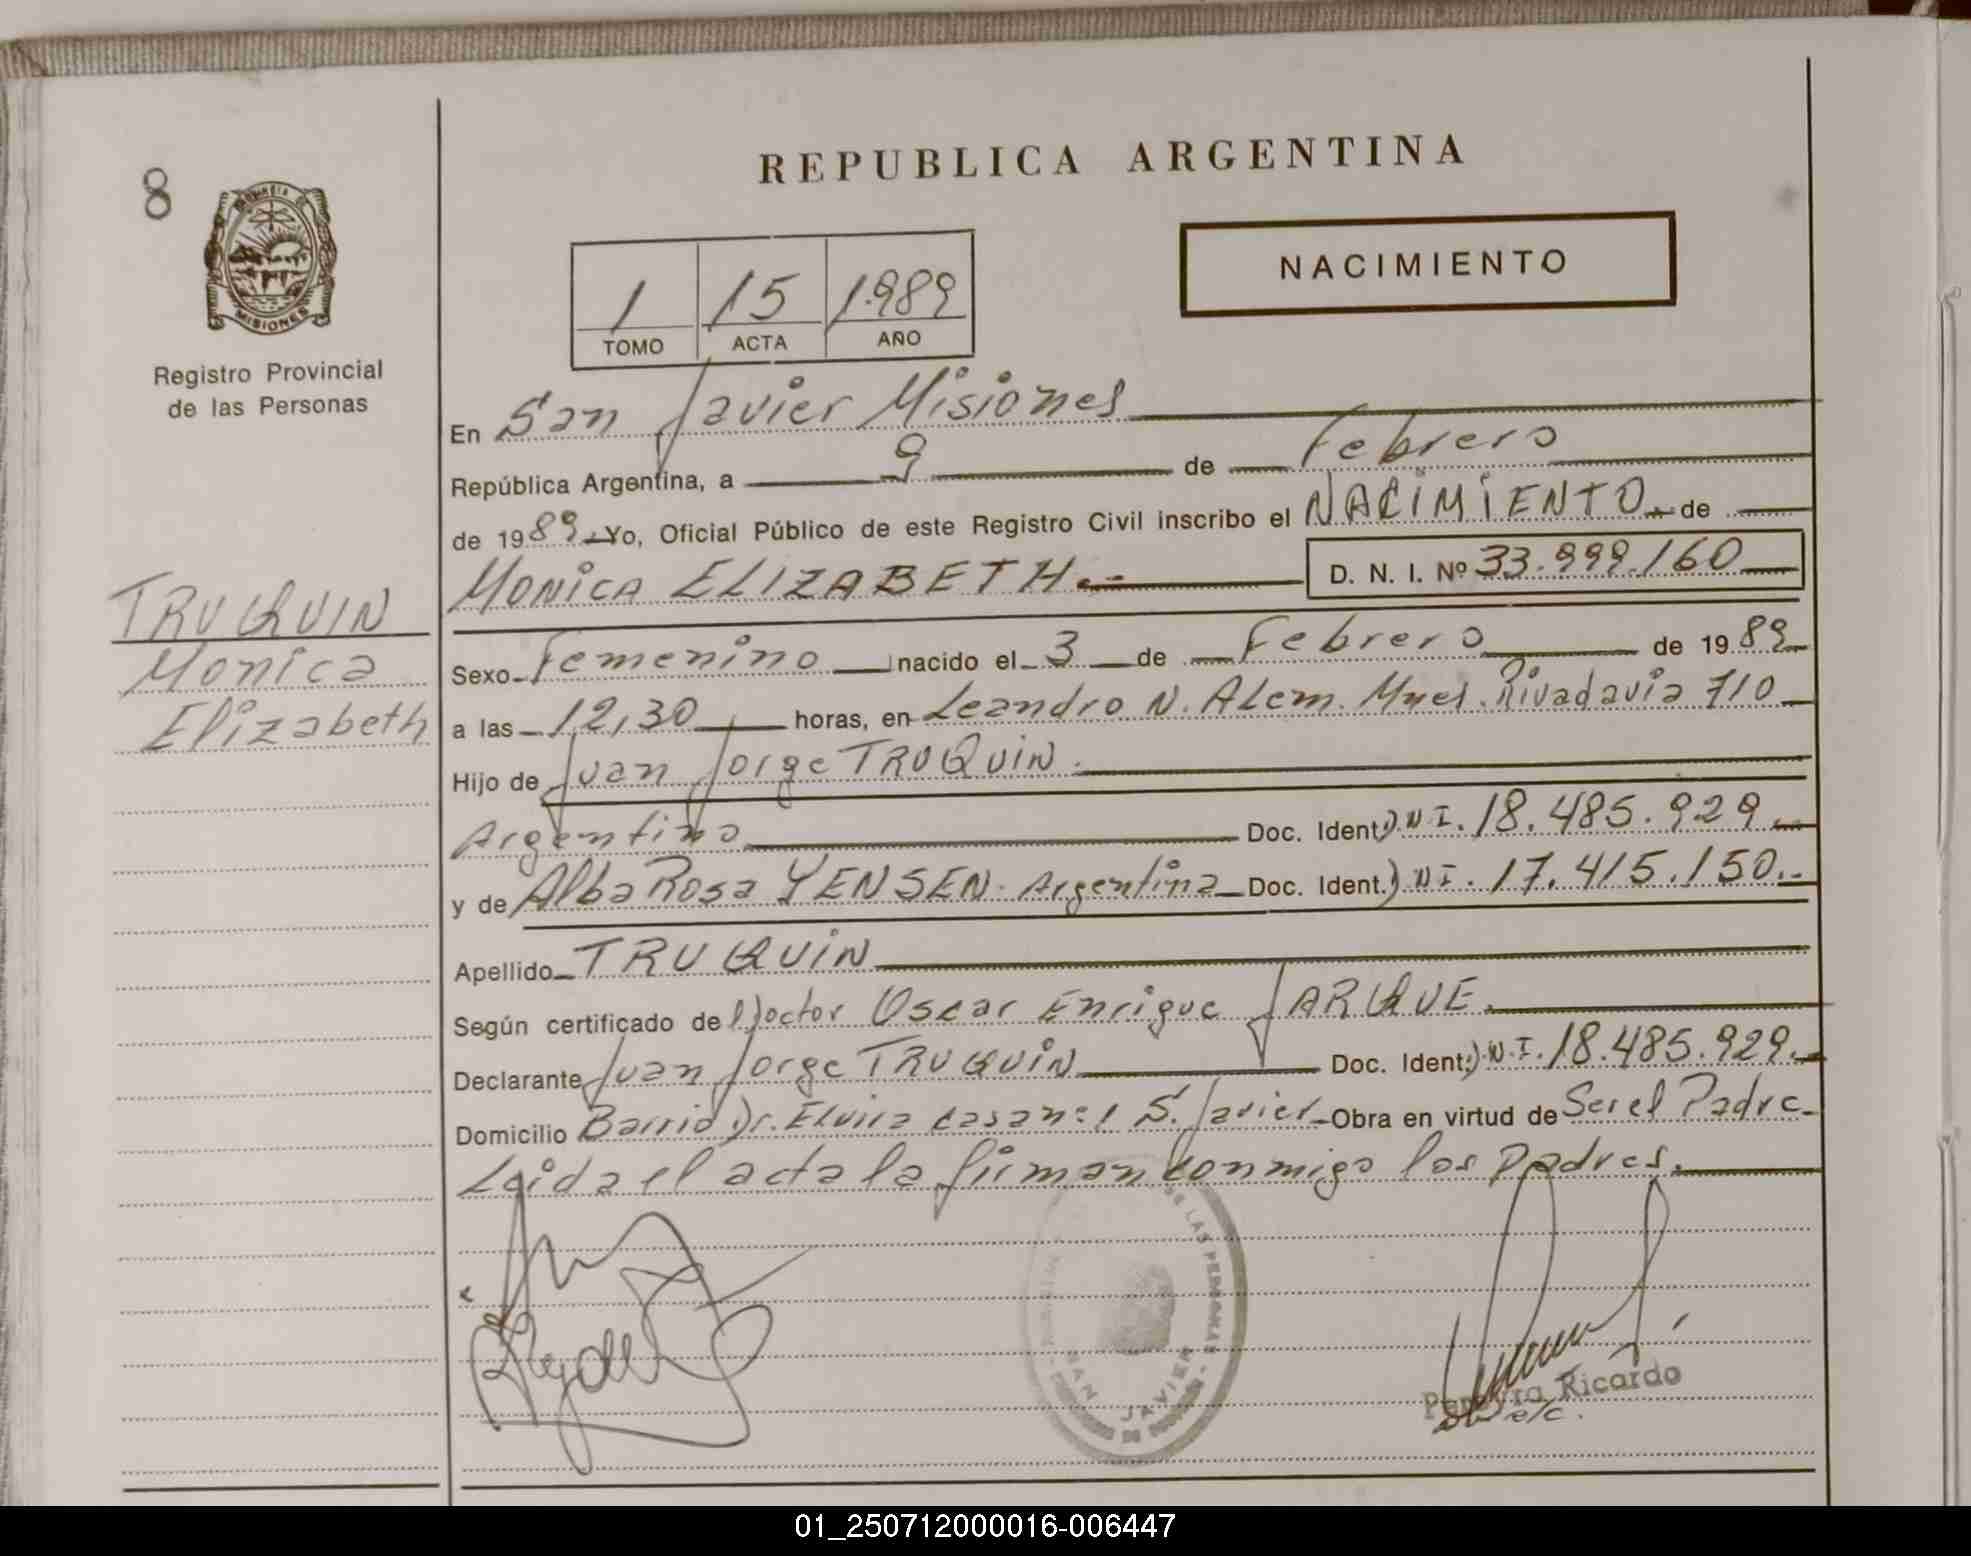 REPUBLICA ARGENTINA
8
PROVINCIA DE
MISIONES
NACIMIENTO
1 15 1.989
TOMO ACTA AÑO
Registro Provincial
de las Personas
En San Javier Misiones
República Argentina, a 9 de Febrero
de 1989. Yo, Oficial Público de este Registro Civil inscribo el NACIMIENTO de
MONICA ELIZABETH.- D. N. I. Nº 33.999.160
TRUQUIN
Monica
Elizabeth
Sexo Femenino nacido el 3 de Febrero de 1989
a las 12,30 horas, en Leandro N. Alem. Rivadavia 710
Hijo de Juan Jorge TRUQUIN.
Argentino Doc. Ident. D.N.I. 18.485.929.
y de Alba Rosa YENSEN. Argentina Doc. Ident. D.N.I. 17.415.150..
Apellido TRUQUIN
Según certificado de Doctor Oscar Enrique JARQUE.
Declarante Juan Jorge TRUQUIN Doc. Ident. D.N.I. 18.485.929.
Domicilio Barrio Dr. Elvira casa nº 1 S. Javier Obra en virtud de Ser el Padre
Leida el acta la firman conmigo los Padres.
DE LAS PERSONAS
SAN JAVIER
Pereyra Ricardo
e/c.
01_250712000016-006447